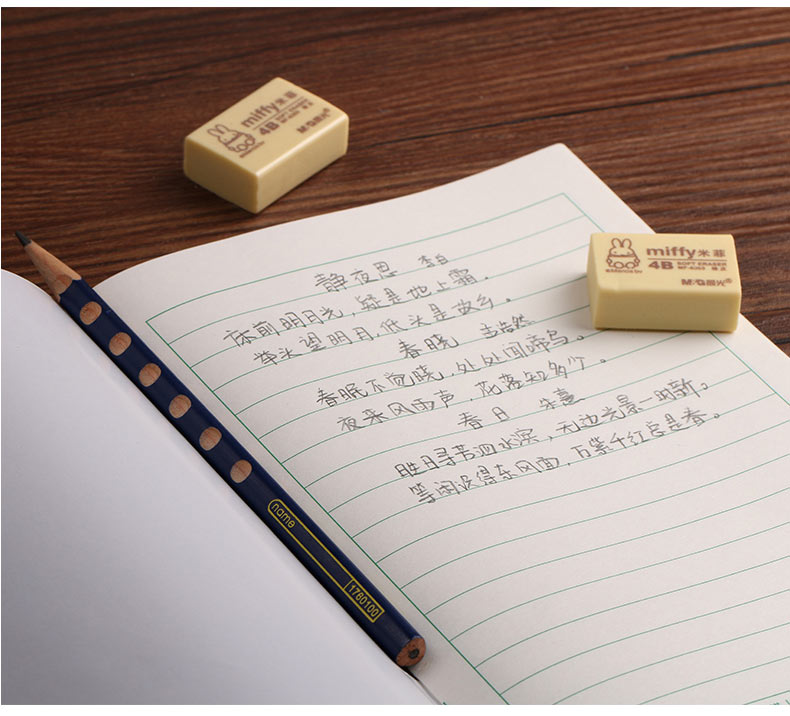 miffy米菲
4B SOFT ERASER
M&G晨光®
miffy米菲
4B SOFT ERASER
M&G晨光®
静夜思 李白
床前明月光,疑是地上霜.
举头望明月,低头是故乡。
春晓 孟浩然
春眠不觉晓,处处闻啼鸟。
夜来风雨声,花落知多少。
春日 朱熹
胜日寻芳泗水滨,无边光景一时新。
等闲识得东风面,万紫千红总是春。
name
1760100